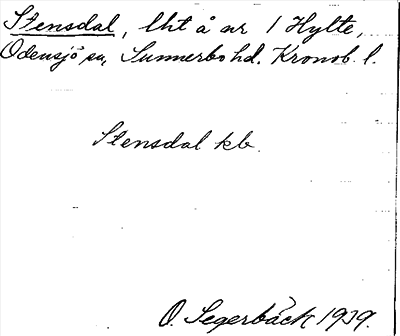 Stensdal, lht å nr 1 Hylte,
Odensjö sn, Sunnerbo hd. Kronob. l.
Stensdal kb.
O. Segerbäck 1939.